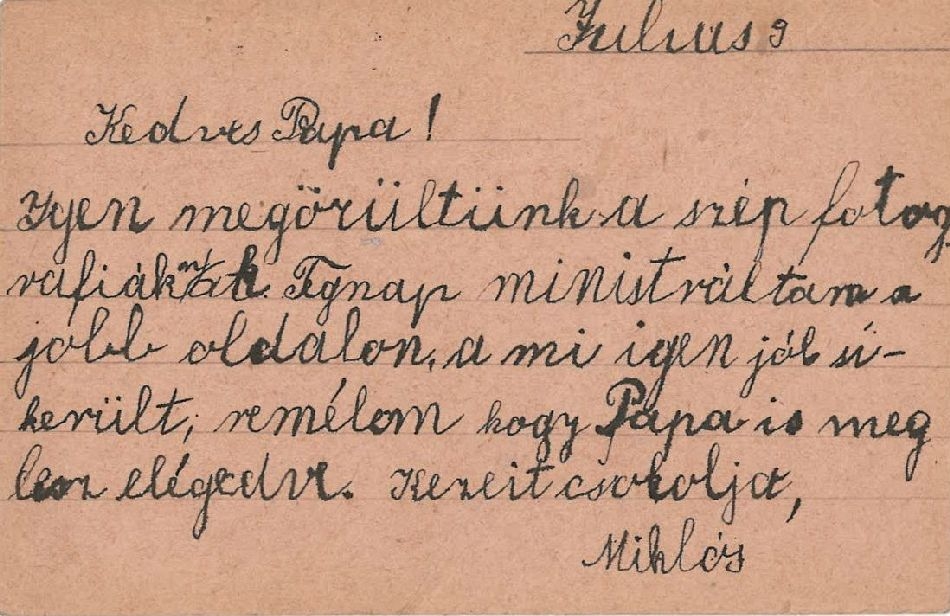 Julius 9
Kedves Papa!
Igen megörültünk a szép fotog
rafiáknak. Tegnap ministráltam a
jobb oldalon, a mi igen jól si-
került, remélem hogy Papa is meg
lesz elégedve. Kezeit csokolja,
Miklós